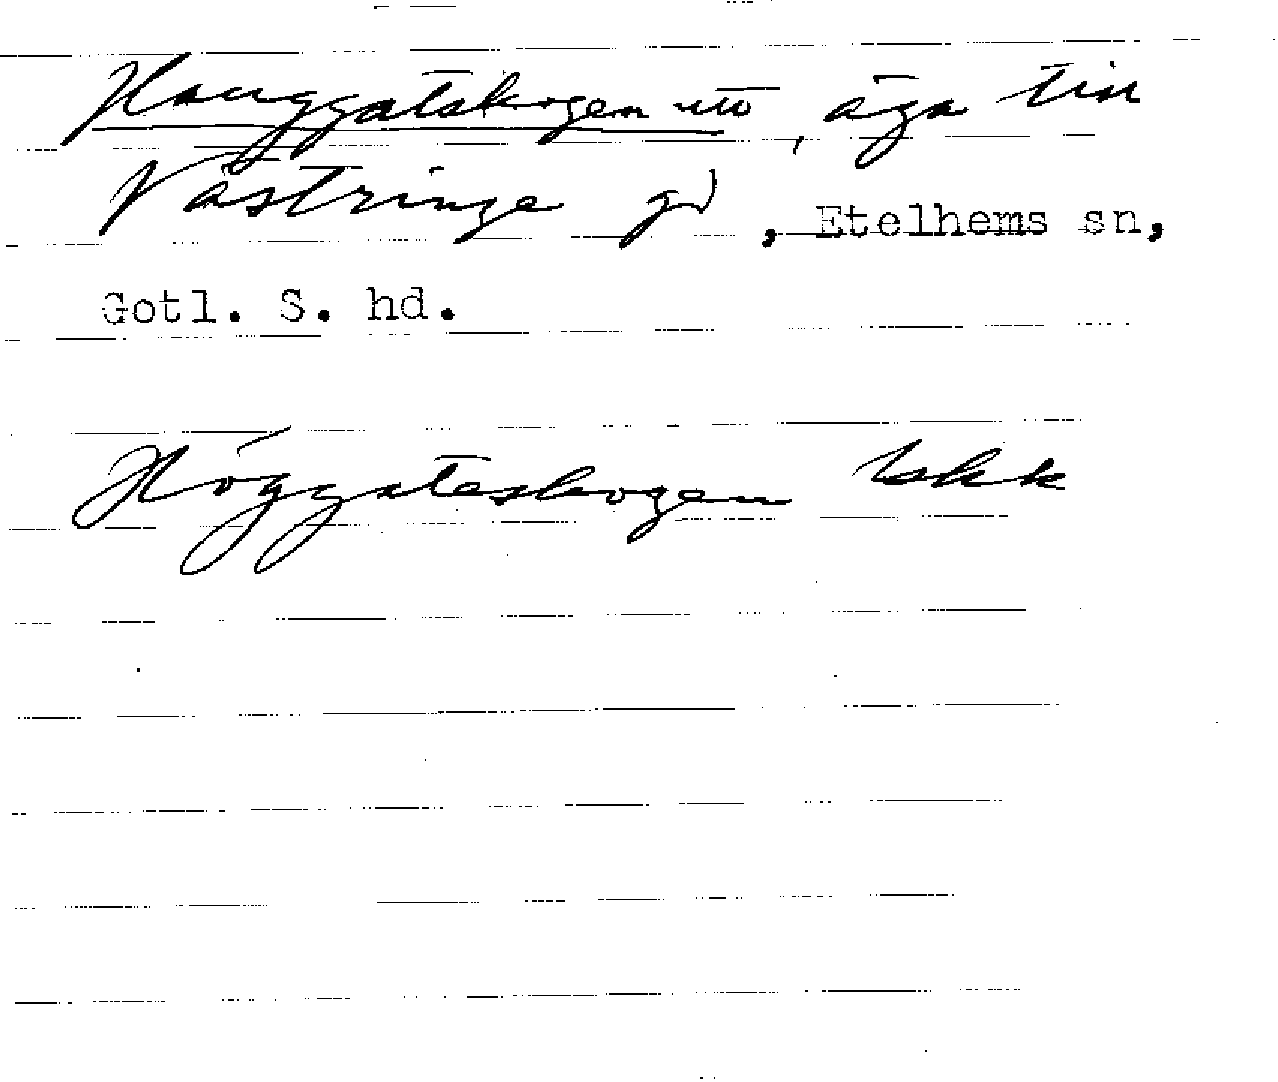 Hauggatskogen uto, äga till
Västringe gd, Etelhems sn,
Gotl. S. hd.
Höggateskogen